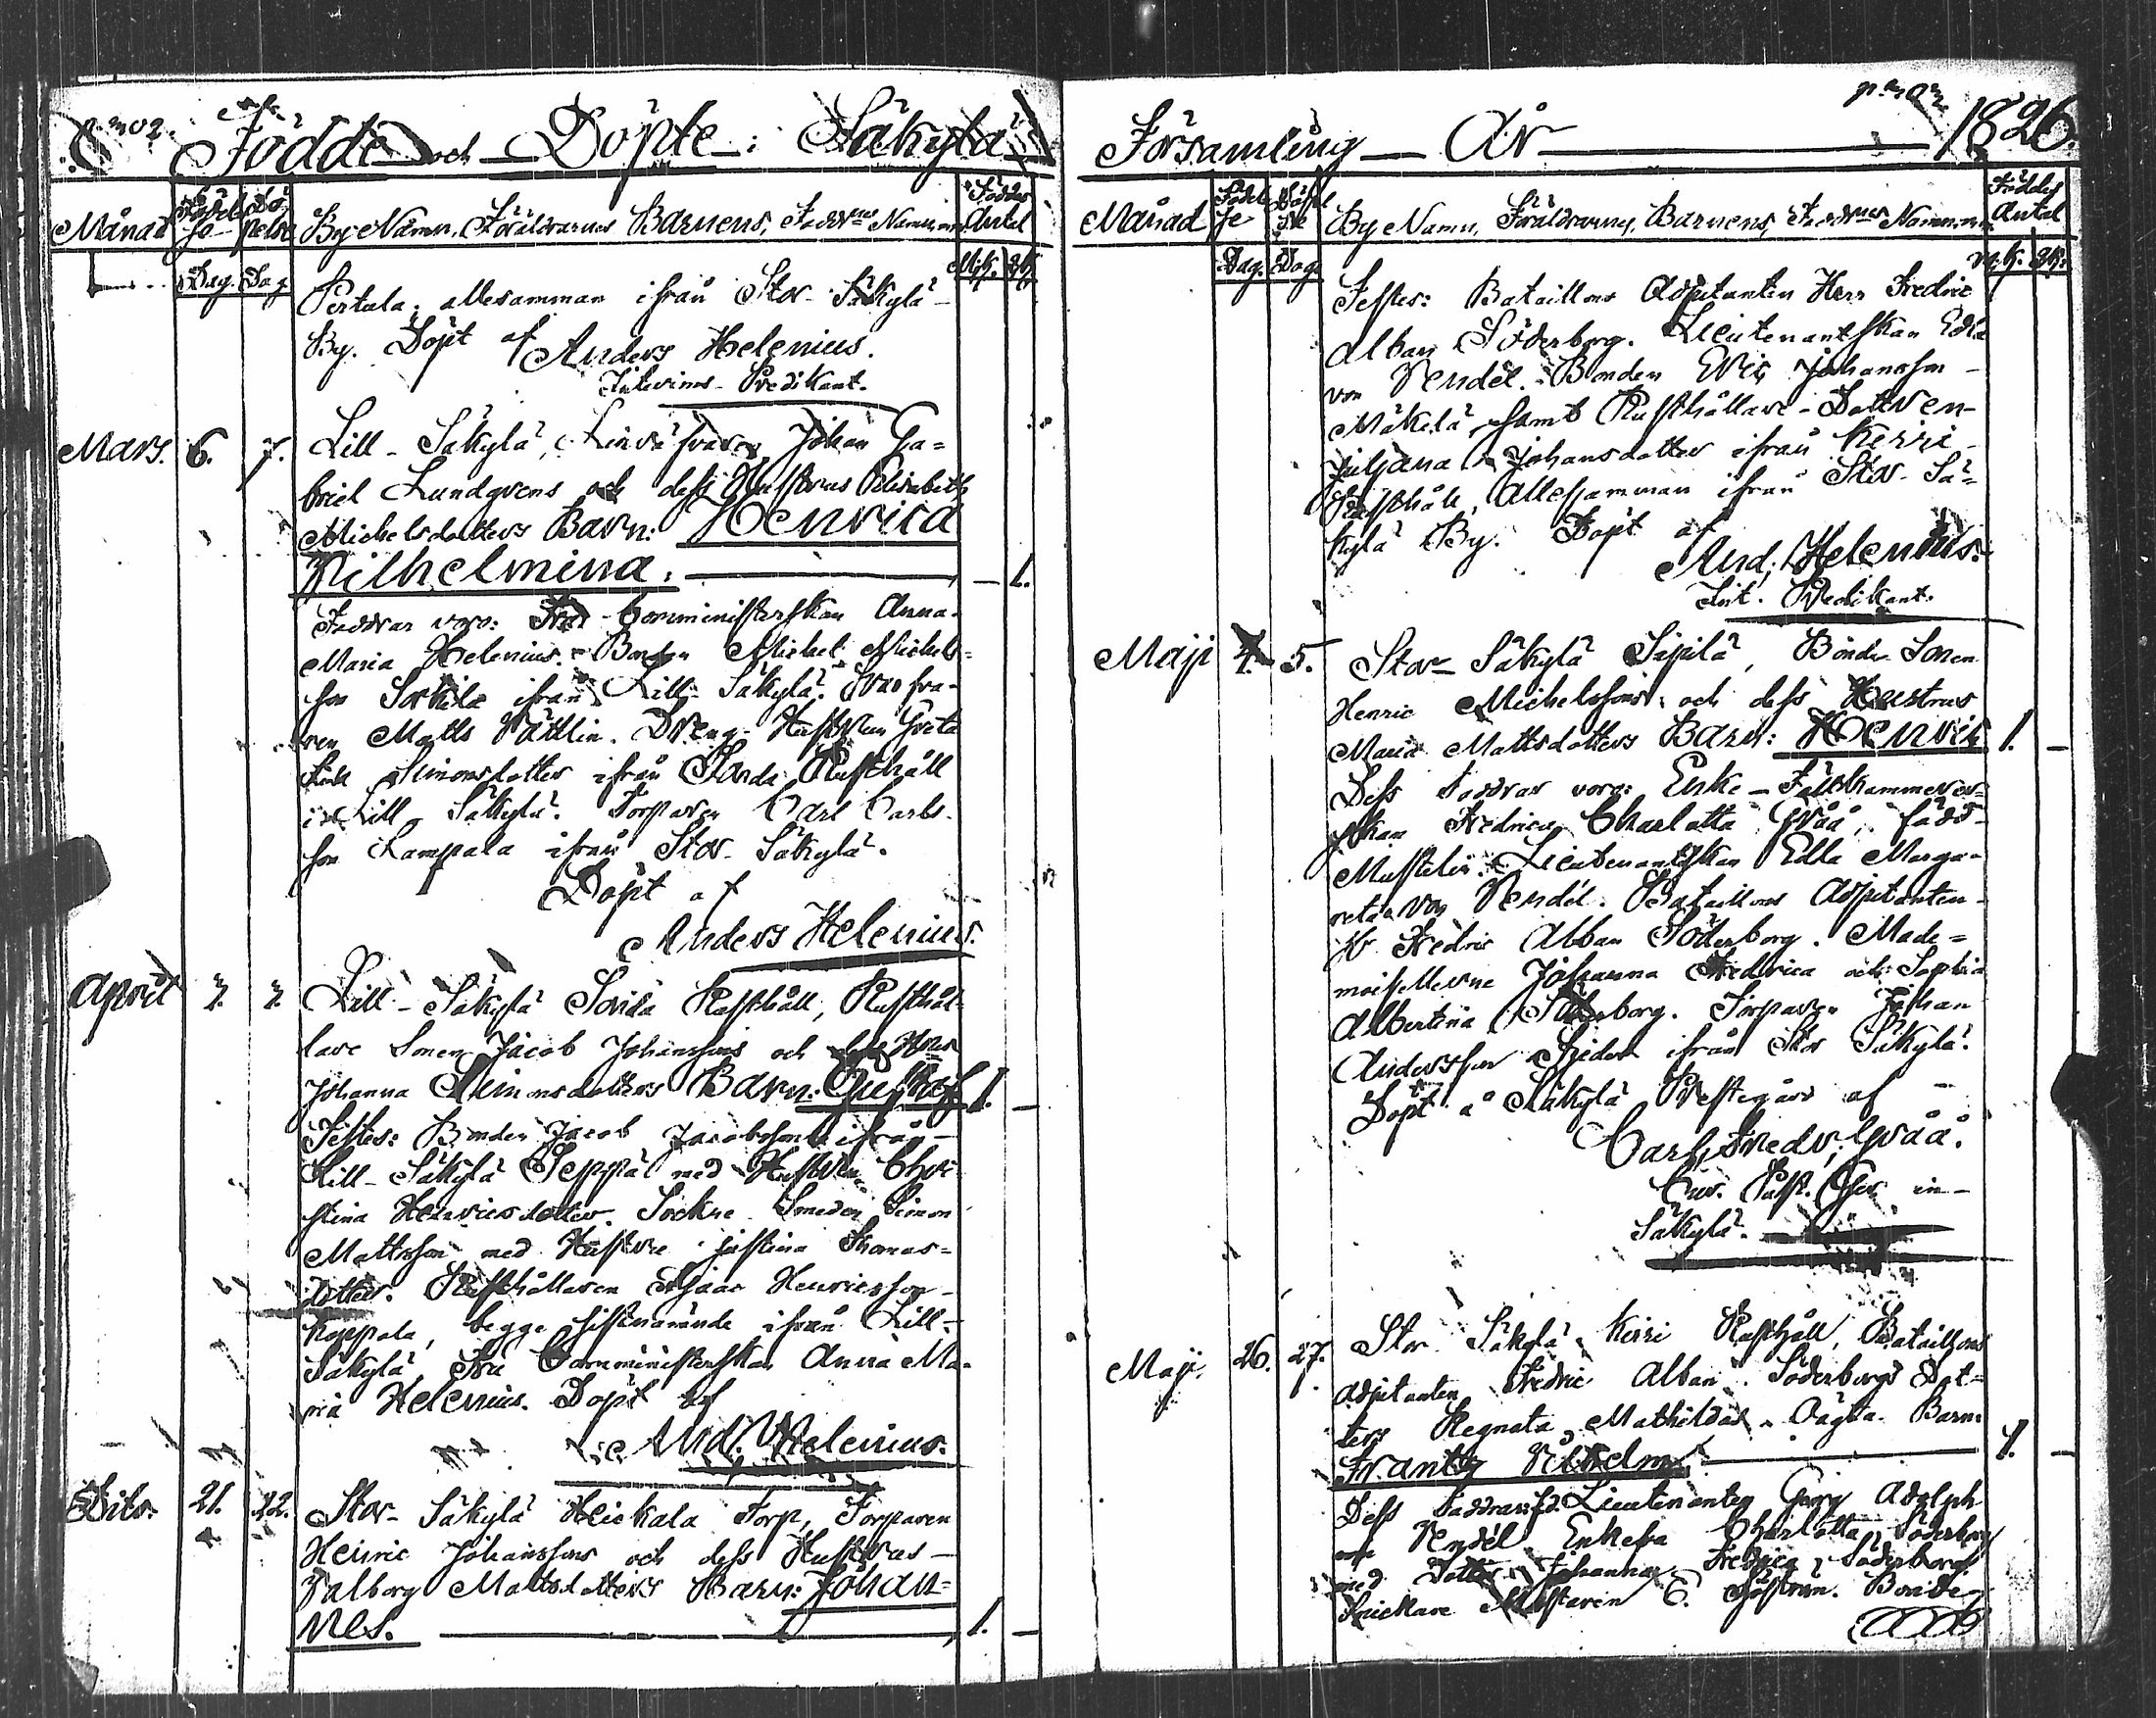 Födde och Döpte i Säkylä
Månad Födelse Döpelse By Namn, Föräldrarnes Barnens, Faddrnes Namn, Föddes Antal
Dag. Dag. Mk. Qk.
Pertula, allesamman ifrån Stor-Säkylä
By. Döpt af Anders Helenius.
Predikant.
Mars. 6. 7. Lill-Säkylä, Johan Ga=
briel Lundgrens och dess Hustrus Elisabeth
Michelsdotters Barn: Henrica
Wilhelmina. — 1.
Faddrar voro: Fru Comministerskan Anna
Maria Helenius. Bonden Michel Michels=
son Sorkila ifrån Lill-Säkylä.
Matts Dreng-Hustrun Greta
Simonsdotter ifrån Rusthåll
i Lill-Säkylä. Torparen Carl Carls-
son Lampala ifrån Stor-Säkylä.
Döpt af
Anders Helenius.
April 7. 7. Lill-Säkylä Rusthåll, Rusthål-
lare Sonen Jacob Johanssons och dess Hus
Johanna Simonsdotters Barn: Gustaf 1. —
Testes: Bonden Jacob Jacobsson ifrån
Lill-Säkylä Seppä med Hustru Chri
stina Henricsdotter. Sockne Smeden Simon
Mattsson med Hustru Justina Thomas=
dotter. Rusthållaren Isaac Henricsson
Koppala, begge sistnämnde ifrån Lill-
Säkylä, Fru Comministerskan Anna Ma-
ria Helenius. Döpt af
And. Helenius.
Dito. 21. 22. Stor-Säkylä Heickala Torp, Torparen
Henric Johanssons och dess Hustrus
Valborg Mattsdotters Barn: Johan=
nes. — 1. —
Församling År 1826.
Månad Födelse Döpelse By Namn, Föräldrarnes, Barnens, Faddrnes Namn Föddes Antal
Dag. Dag. Mk. Qk.
Testes: Bataillons Adjutanten Herr Fredric
Alban Söderborg. Lieutenantskan Edla
von Vendel. Bonden Eric Johansson
Mäkelä, samt Rusthållare-Dottren
Juliana Johansdotter ifrån Kerri
Rusthåll, Allesamman ifrån Stor-Sä=
kylä By. Döpt af
And. Helenius.
Int. Predikant.
Maji 4. 5. Stor-Säkylä Sipilä, Bonde Sonen
Henric Michelssons och dess Hustrus
Maria Mattsdotters Barn: Henric 1. —
Dess Faddrar voro: Enke-
skan Fredrica Charlotta Gråå, född
Mustelin. Lieutenantskan Edla Marga=
reta von Vendel. Bataillons Adjutanten
Hr Fredric Alban Söderborg. Made=
moisellerne Johanna Fredrica och Sophia
Albertina Söderborg. Torparen Johan
Andersson ifrån Stor Säkylä.
Döpt å Säkylä Prestegård af
Carl Fredr. Gråå.
in
Säkylä.
Maji. 26. 27. Stor Säkylä Kerri Rusthåll, Bataillons
Adjutanten Fredric Alban Söderborgs Dot=
ters Regnata Mathildas Oägta Barn:
Frantz Vilhelm — 1. —
Dess Faddrar: Lieutenanten Georg Adolph
von Vendel. Enkefru Charlotta Söderborg
med Dotter Johanna Fredrica Söderborg.
Snickare Mästaren C. Sjöström. Bonde